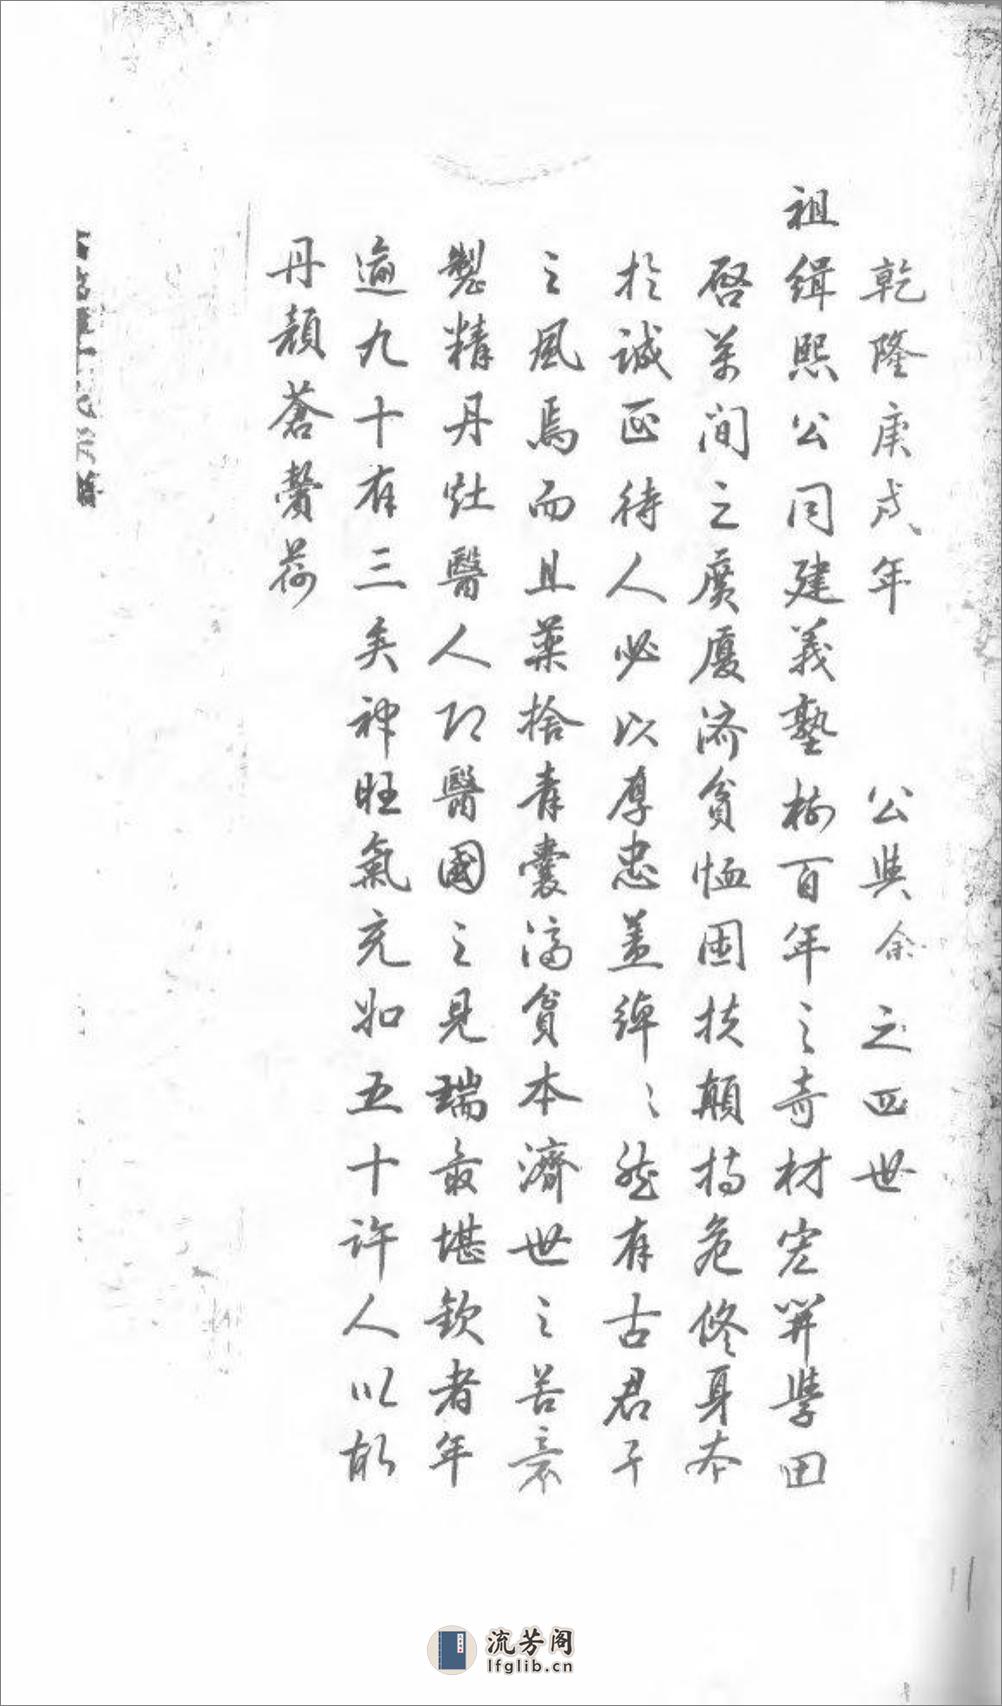 乾隆庚戌年 公與余之四世
祖緝熙公同建義塾樹百年之奇材宏開學田
啓萬間之廣廈济貧恤困扶顛持危修身本
扵誠正待人必以厚忠盖綽〻然有古君子
之風焉而且藥捨青囊濟貧本濟世之苦衷
製精丹灶醫人即醫國之見端最堪欽者年
逾九十有三矣神旺氣充如五十許人以故
丹顏蒼鬢荷
流芳阁
lfglib.cn